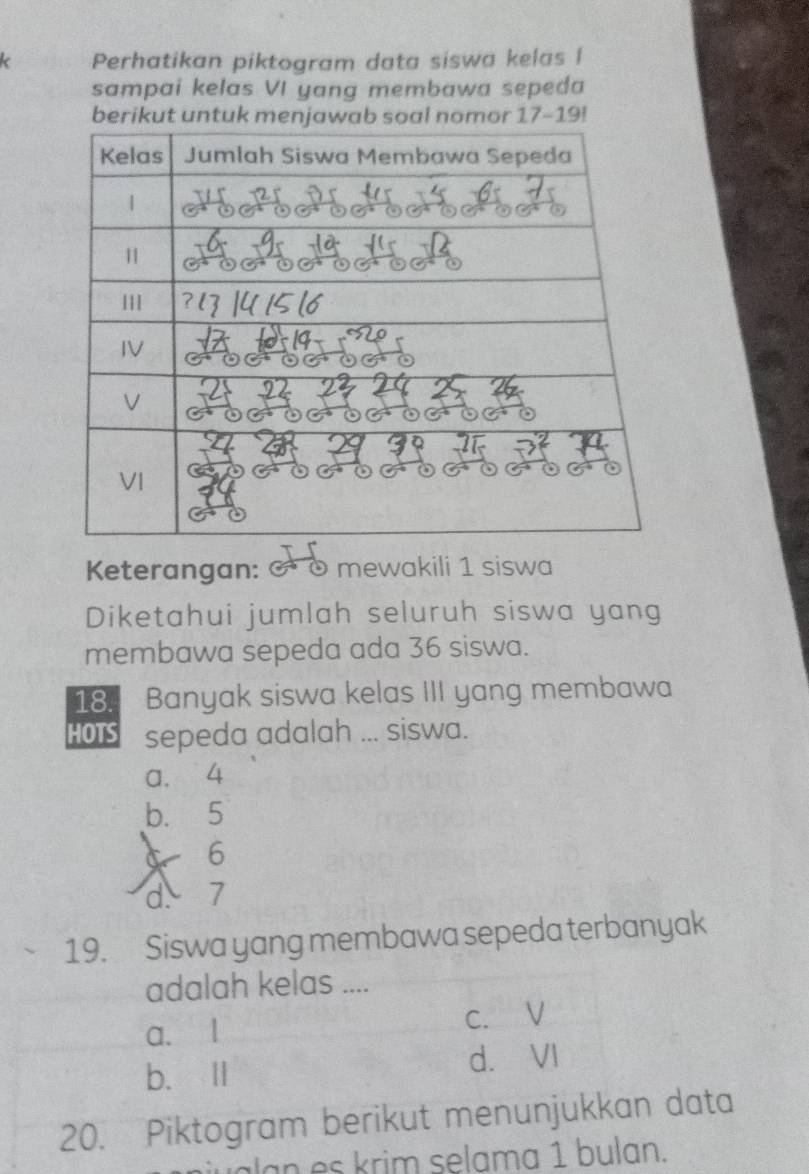 k
Perhatikan piktogram data siswa kelas I
sampai kelas VI yang membawa sepeda
berikut untuk menjawab soal nomor 17-19!
Kelas Jumlah Siswa Membawa Sepeda
I
II
III ? 13 14 15 16
IV
V 21 22 23 24 25 26
VI 27 28 29 30
Keterangan: mewakili 1 siswa
Diketahui jumlah seluruh siswa yang
membawa sepeda ada 36 siswa.
18. Banyak siswa kelas III yang membawa
HOTS sepeda adalah ... siswa.
a. 4
b. 5
c. 6
d. 7
19. Siswa yang membawa sepeda terbanyak
adalah kelas ....
a. I
c. V
b. II
d. VI
20. Piktogram berikut menunjukkan data
es krim selama 1 bulan.